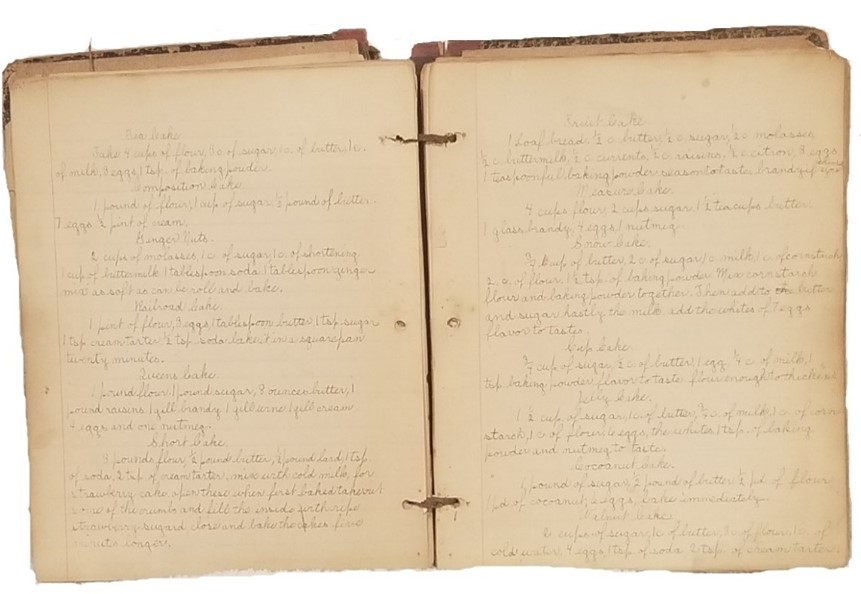 Cake.
Take 4 cups of flour, 3 c. of sugar, 1 c. of butter, 1 c.
of milk, 3 eggs, 1 tsp. of baking powder.
Composition Cake.
1 pound of flour, 1 cup of sugar, ½ pound of butter.
7 eggs ½ pint of cream.
Ginger Nuts.
2 cups of molasses, 1 c. of sugar, 1 c. of shortening.
1 cup of buttermilk 1 tablespoon soda 1 tablespoon ginger
mix as soft as can be roll and bake.
Railroad Cake.
1 pint of flour, 3 eggs 1 tablespoon butter, 1 tsp. sugar
1 tsp cream tarter ½ tsp soda bake it in a square pan
twenty minutes.
Queens Cake.
1 pound flour, 1 pound sugar, 8 ounces butter, 1
pound raisins 1 gill brandy, 1 gill wine 1 gill cream
4 eggs and one nutmeg.
Short Cake.
3 pounds flour, ½ pound butter, ½ pound lard, 1 tsp
of soda, 2 tsp of cream tarter, mix with cold milk, for
strawberry cake open these when first baked take out
some of the crumb and fill the inside with ripe
strawberry sugard, close and bake the cakes five
minuts longer.
Fruit Cake.
1 loaf bread ½ c. butter, ½ c. sugar, ½ c. molasses
½ c. buttermilk, ½ c. currents, ½ c. raisins, ½ c. citron, 3 eggs
1 teaspoonful baking powder season to taste, brandy if
Measure Cake.
4 cups flour 2 cups sugar, 1 ½ tea cups butter
1 glass brandy, 4 eggs 1 nutmeg.
Snow Cake.
cup of butter, 2 c. of sugar 1 c. milk, 1 c. of cornstarch
2 c. of flour, 1 ½ tsp. of baking powder Mix cornstarch
flour and baking powder together. Then add to the butter
and sugar hastly the milk, add the whites of 7 eggs
flavor to taste.
Cup Cake.
cup of sugar, ½ c. of butter, 1 egg, c. of milk, 1
tsp. baking powder, flavor to taste flour enough to thicken it
Jelly Cake.
1 ½ cup of sugar, 1 c. of butter, ½ c. of milk, 1 c. of corn
starch, 1 c. of flour, 6 eggs, the whites, 1 tsp. of baking
powder and nutmeg to taste.
Cocoanut Cake.
1 pound of sugar, ½ pound of butter ½ pd. of flour
1 pd. of cocoanut, 6 eggs, bake immediately.
Cake.
2 cups of sugar, 1 c. of butter, 3 c. of flour, 1 c. of
cold water, 4 eggs, 1 tsp. of soda 2 tsp. of cream tarter.